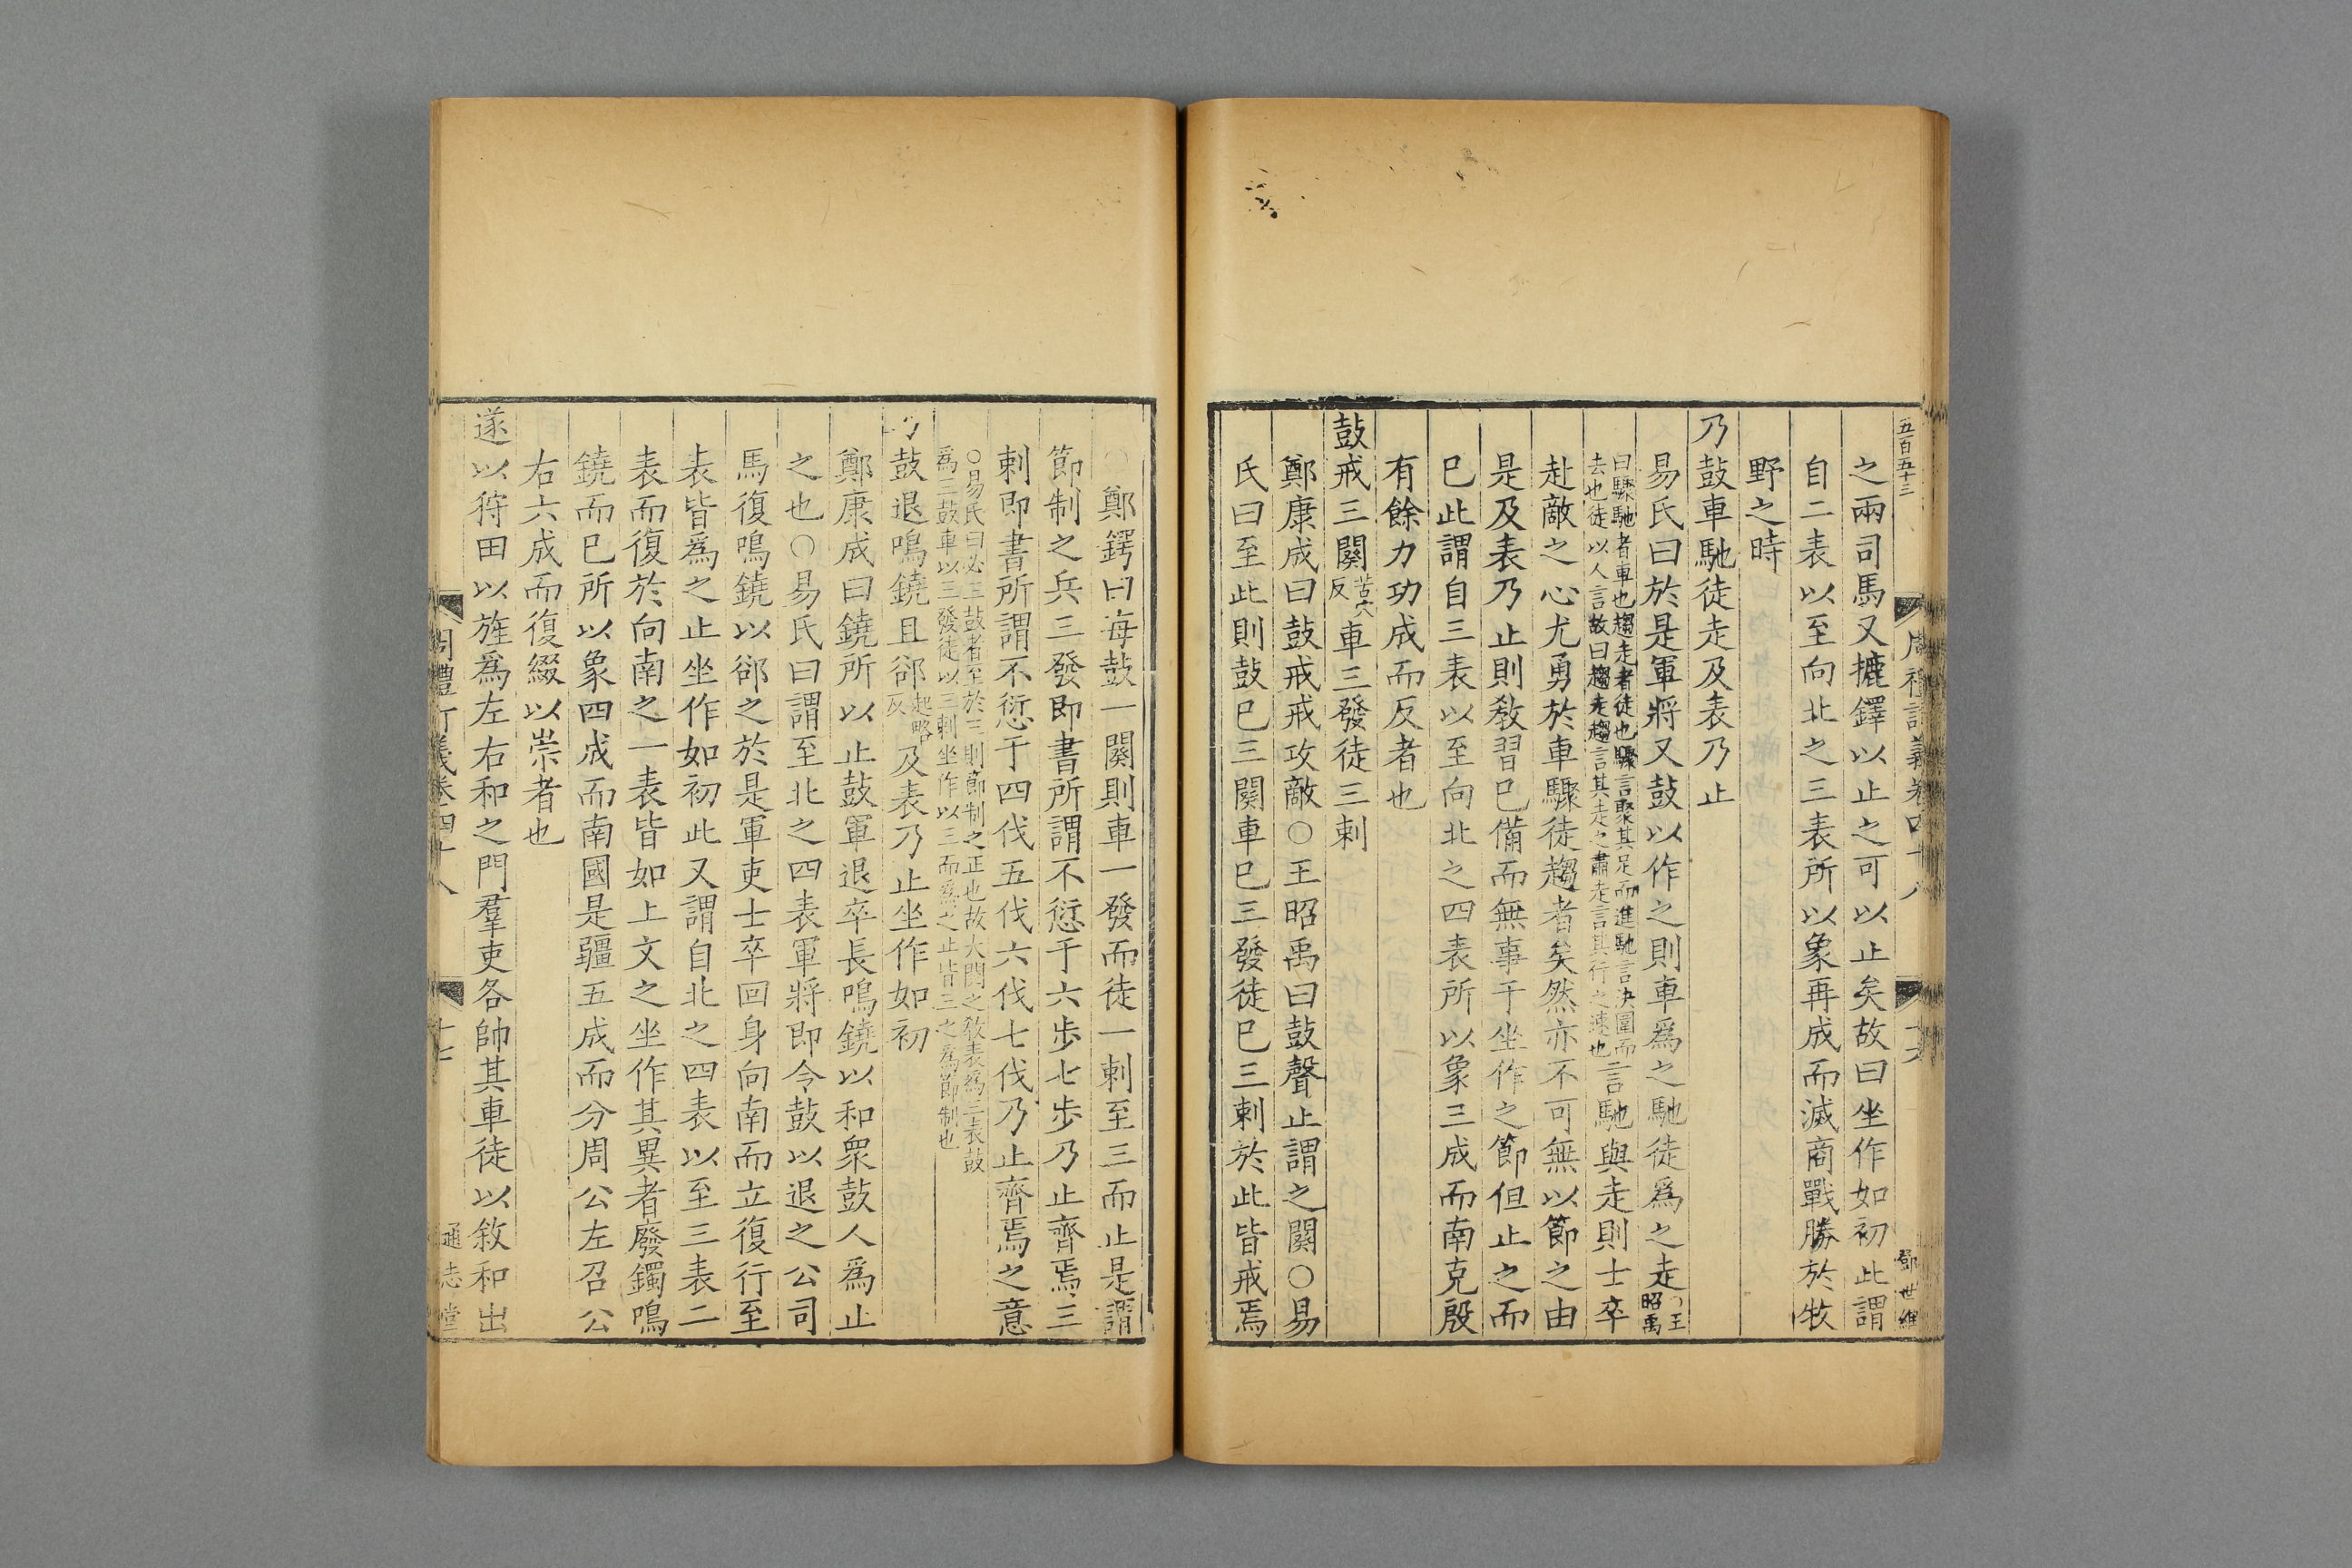 五百五十三
周禮訂義卷四十八
十六
鄧世維
之兩司馬又摝鐸以止之可以止矣故曰坐作如初此謂
自二表以至向北之三表所以象再成而滅商戰勝於牧
野之時
乃鼓車馳徒走及表乃止
易氏曰於是軍將又鼓以作之則車爲之馳徒爲之走○王昭禹
曰驟馳者車也趨走者徒也驟言聚其足而進馳言決圍而
去也徒以人言故曰趨走趨言其走之肅走言其行之速也言馳與走則士卒
赴敵之心尤勇於車驟徒趨者矣然亦不可無以節之由
是及表乃止則敎習已備而無事于坐作之節但止之而
已此謂自三表以至向北之四表所以象三成而南克殷
有餘力功成而反者也
鼓戒三闋苦穴反車三發徒三刺
鄭康成曰鼓戒戒攻敵○王昭禹曰鼓聲止謂之闋○易
氏曰至此則鼓已三闋車已三發徒已三刺於此皆戒焉
○鄭鍔曰每鼓一闋則車一發而徒一刺至三而止是謂
節制之兵三發即書所謂不愆于六步七步乃止齊焉三
刺即書所謂不愆于四伐五伐六伐七伐乃止齊焉之意
○易氏曰必三鼓者至於三則節制之正也故大閱之敎表爲三表鼓
爲三鼓車以三發徒以三刺坐作以三而爲之止皆三之爲節制也
乃鼓退鳴鐃且郤起略反及表乃止坐作如初
鄭康成曰鐃所以止鼓軍退卒長鳴鐃以和衆鼓人爲止
之也○易氏曰謂至北之四表軍將即令鼓以退之公司
馬復鳴鐃以郤之於是軍吏士卒回身向南而立復行至
表皆爲之止坐作如初此又謂自北之四表以至三表二
表而復於向南之一表皆如上文之坐作其異者廢鐲鳴
鐃而已所以象四成而南國是疆五成而分周公左召公
右六成而復綴以崇者也
遂以狩田以旌爲左右和之門羣吏各帥其車徒以敘和出
周禮訂義卷四十八
十七
通志堂